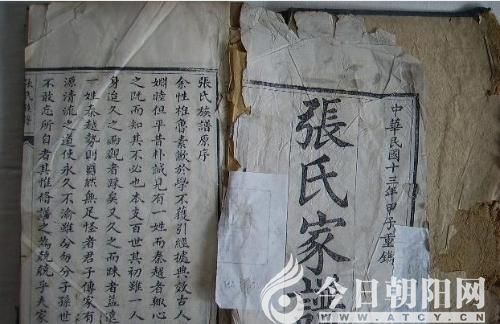 中華民國十三年甲子重鐫
張氏家譜
張氏族譜原序
余性椎魯素歉於學不獲引經據典效古人
婣睦但平昔朴誠見有一姓而秦越者輒心
之既而知其不必也本支百世其初雖一人
身迨久之而親者踈矣又久之而踈者益遠
一姓秦越勢則固然無足怪者君子傳家有
源清流之道使永久不渝雖分每分子孫世
不敢忘所自者其惟脩譜之為兢兢乎夫家
今日朝阳网
WWW.ATCY.CN